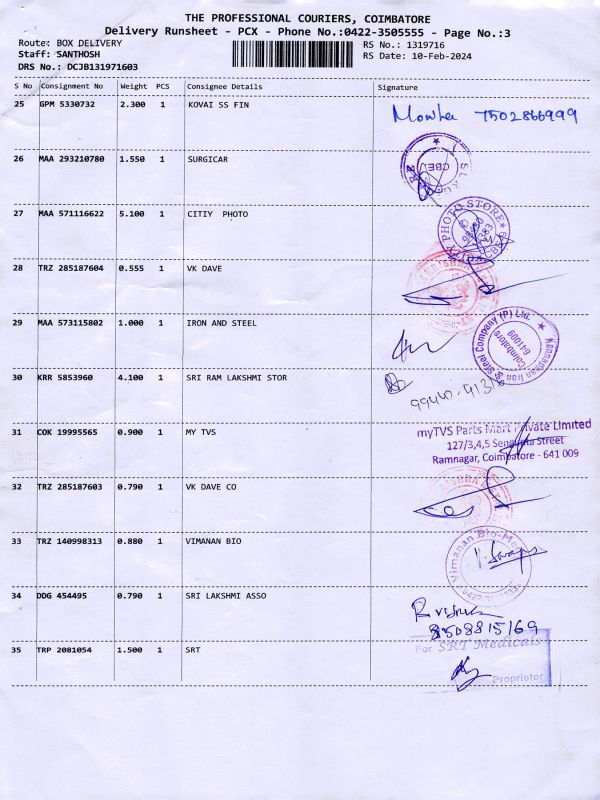 THE PROFESSIONAL COURIERS, COIMBATORE
Delivery Runsheet - PCX - Phone No.:0422-3505555 - Page No.:3
Route: BOX DELIVERY
RS No.: 1319716
Staff: SANTHOSH
RS Date: 10-Feb-2024
DRS No.: DCJB131971603
S No Consignment No Weight PCS Consignee Details Signature
25 GPM 5330732 2.300 1 KOVAI SS FIN
7502866999
26 MAA 293210780 1.550 1 SURGICAR
CBE
27 MAA 571116622 5.100 1 CITIY PHOTO
PHOTO STORE
28 TRZ 285187604 0.555 1 VK DAVE
29 MAA 573115802 1.000 1 IRON AND STEEL
Iron & Steel Company (P) Ltd.
Coimbatore
641009
30 KRR 5853960 4.100 1 SRI RAM LAKSHMI STOR
31 COK 19995565 0.900 1 MY TVS
myTVS Parts Mart Private Limited
127/3,4,5 Sengupta Street
Ramnagar, Coimbatore - 641 009
32 TRZ 285187603 0.790 1 VK DAVE CO
33 TRZ 140998313 0.880 1 VIMANAN BIO
Vimanan Bio-Me
34 DDG 454495 0.790 1 SRI LAKSHMI ASSO
8508815169
35 TRP 2081054 1.500 1 SRT
For SRT Medicals
Proprietor